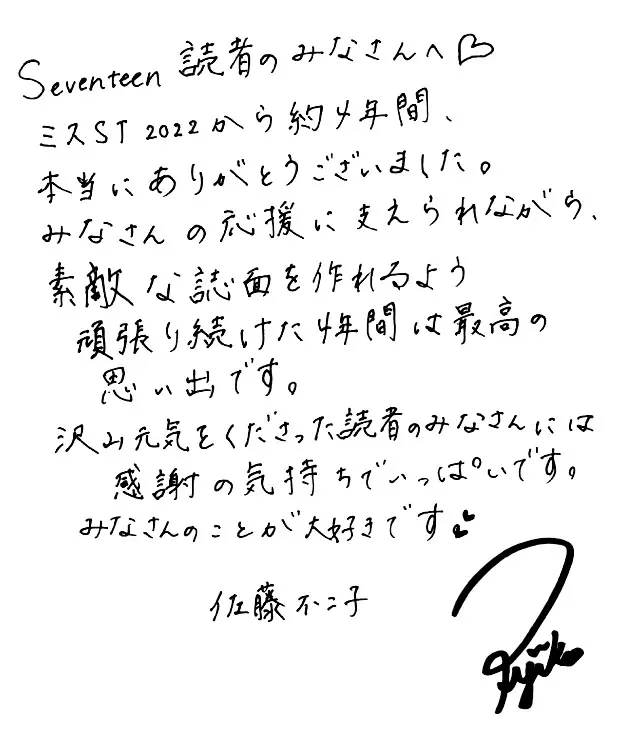 Seventeen 読者のみなさんへ♡
ミスST2022から約4年間、
本当にありがとうございました。
みなさんの応援に支えられながら、
素敵な誌面を作れるよう
頑張り続けた4年間は最高の
思い出です。
沢山元気をくださった読者のみなさんには
感謝の気持ちでいっぱいです。
みなさんのことが大好きです💕
佐藤不二子
Fujiko